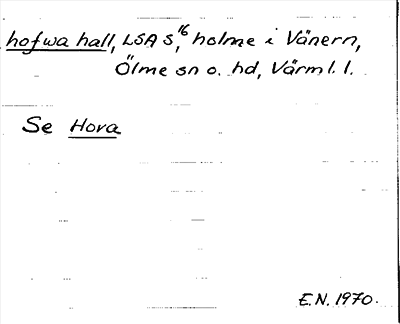 hofwa hall, LSA S,16 holme i Vänern,
Ölme sn o. hd, Värml. l.
Se Hova
E.N. 1970.